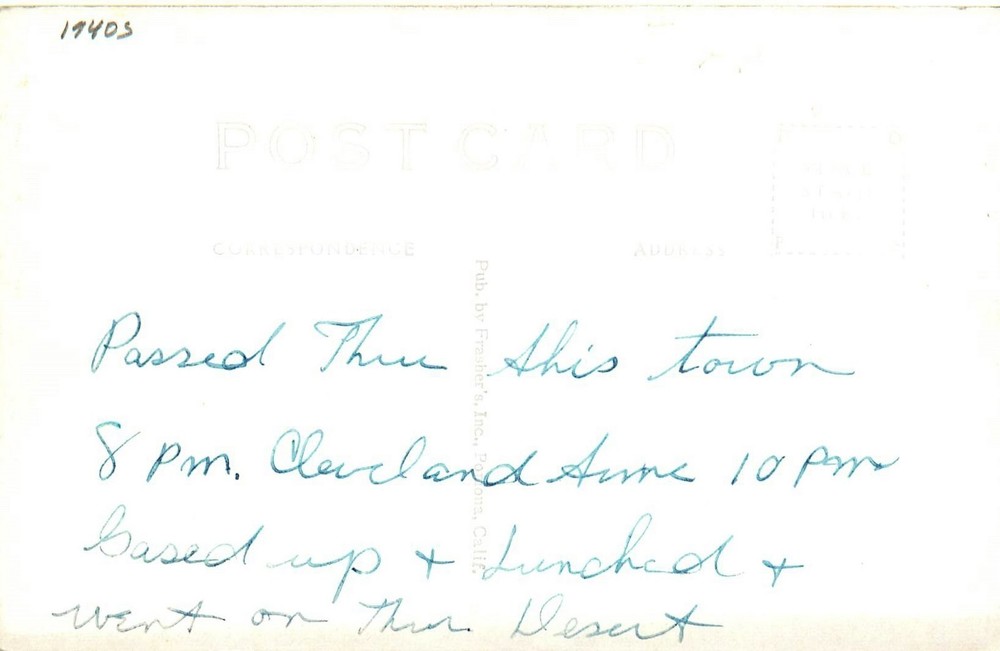 1940s
POST CARD
PLACE
STAMP
HERE
CORRESPONDENCE
ADDRESS
Pub. by Frasher's, Inc., Pomona, Calif.
Passed Thru this town
8 PM. Cleveland time 10 PM
Gased up + Lunched +
went on Thru Desert